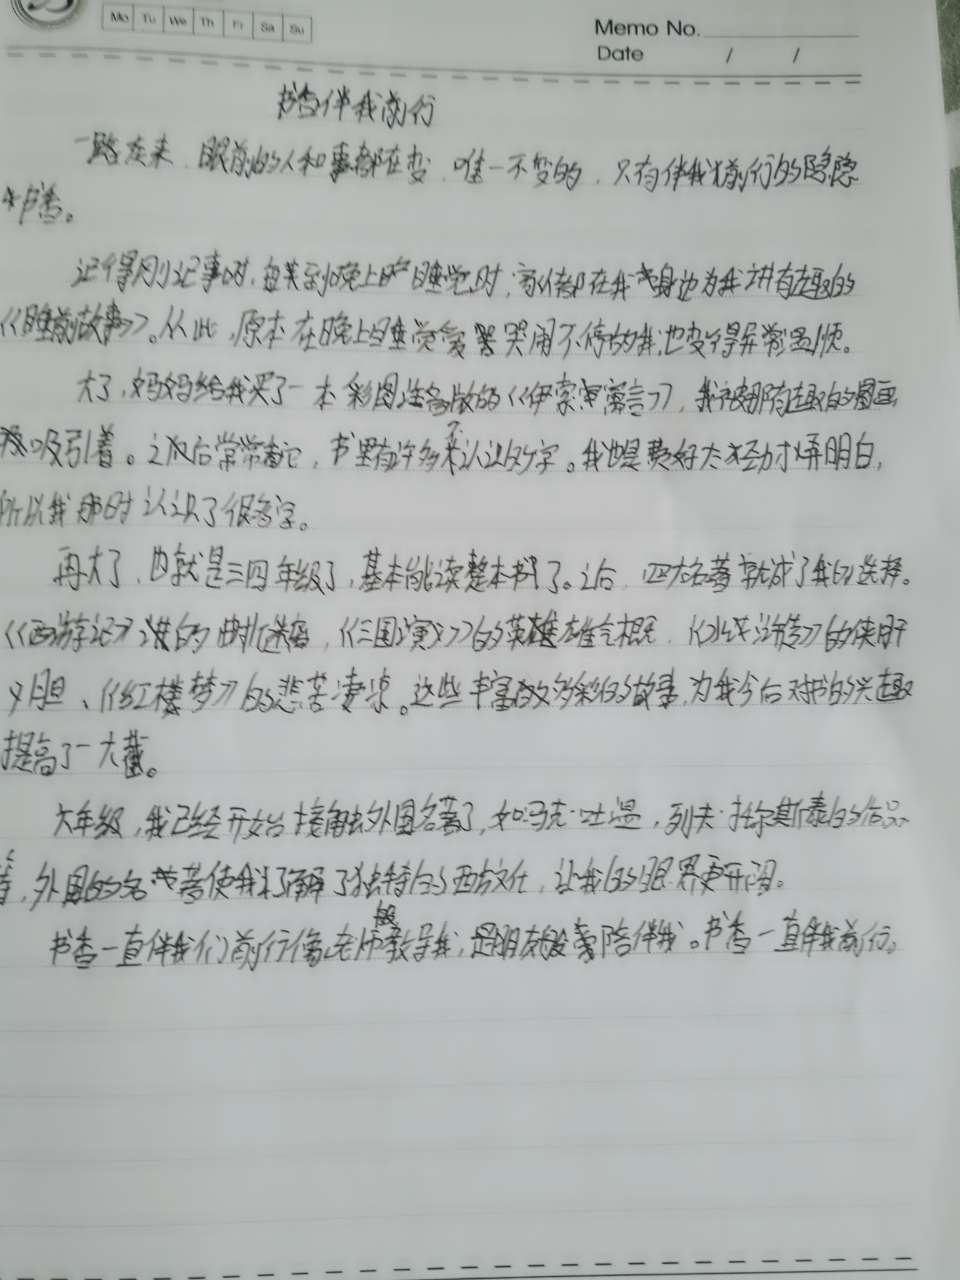 Mo Tu We Th Fr Sa Su
Memo No.
Date / /
书香伴我前行
一路走来,眼前的人和事都在变,唯一不变的,只有伴我前行的隐隐
书香。
记得刚记事时,每天到晚上睡觉时,家人都在我身边为我讲有趣的
《睡前故事》。从此,原本在晚上睡觉爱哭闹不停的我,也变得异常温顺。
大了,妈妈给我买了一本彩图注音版的《伊索寓言》,我被那有趣的图画
吸引着。之后常常看它,书里有许多不认识的字。我也是费好大劲才弄明白,
所以我那时认识了很多字。
再大了,也就是三四年级了,基本能读整本书了。之后,四大名著就成了我的选择。
《西游记》的,《三国演义》的英雄气概,《水浒传》的侠肝
义胆、《红楼梦》的悲苦凄凉。这些丰富多彩的故事,为我今后对书的兴趣
提高了一大截。
六年级,我已经开始接触外国名著了,如马克·吐温,列夫·托尔斯泰的作品
等,外国的名著使我了解了独特的西方文化,让我的眼界更开阔。
书香一直伴我们前行像老师般教导我,是朋友般陪伴我。书香一直伴我前行。